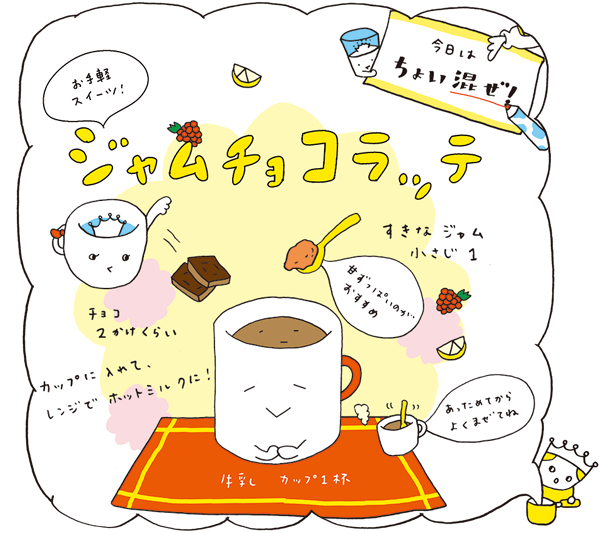 今日は
ちょい混ぜ!
お手軽
スイーツ!
ジャムチョコラッテ
すきなジャム
小さじ1
甘ずっぱいのが
おすすめ
チョコ
2かけくらい
カップに入れて、
レンジでホットミルクに!
あっためてから
よくまぜてね
牛乳 カップ1杯